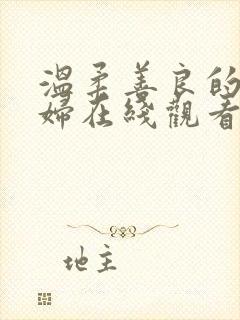 溫柔善良的
婦在綫觀看
地主